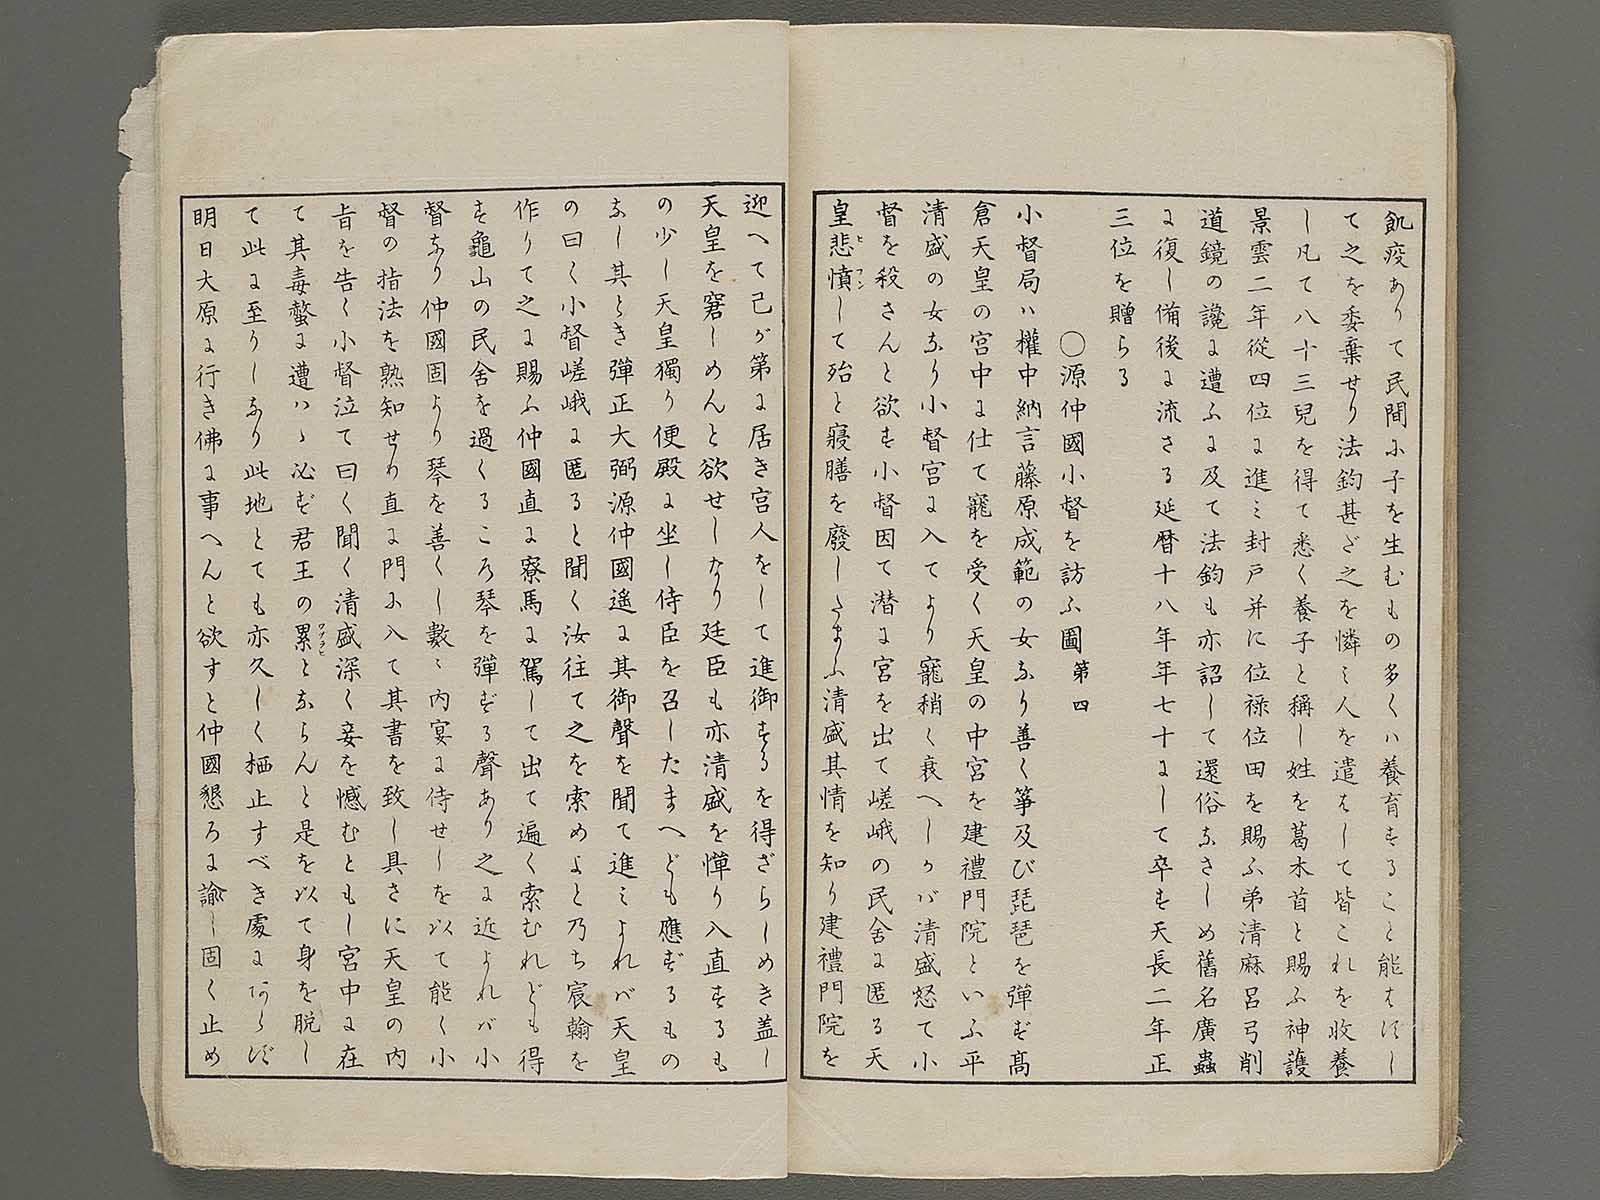 飢疫ありて民間に子を生むもの多くハ養育すること能はずし
て之を委棄せり法鈞甚だ之を憐ミ人を遣はして皆これを收養
し凡て八十三兒を得て悉く養子と稱し姓を葛木首と賜ふ神護
景雲二年從四位に進ミ封戸并に位祿位田を賜ふ弟清麻呂弓削
道鏡の讒に遭ふに及て法鈞も亦詔して還俗なさしめ舊名廣蟲
に復し備後に流さる延暦十八年年七十にして卒す天長二年正
三位を贈らる
〇源仲國小督を訪ふ圖 第四
小督局ハ權中納言藤原成範の女なり善く箏及び琵琶を彈ず高
倉天皇の宮中に仕て寵を受く天皇の中宮を建禮門院といふ平
清盛の女なり小督宮に入てより寵稍く衰へしかバ清盛怒て小
督を殺さんと欲す小督因て潜に宮を出て嵯峨の民舍に匿る天
皇悲憤して殆と寢膳を廢したまふ清盛其情を知り建禮門院を
迎へて己が第に居き宮人をして進御するを得ざらしめき蓋し
天皇を窘しめんと欲せしなり廷臣も亦清盛を憚り入直するも
の少し天皇獨り便殿に坐し侍臣を召したまへども應ずるもの
なし其とき彈正大弼源仲國遙に其御聲を聞て進ミよれバ天皇
の曰く小督嵯峨に匿ると聞く汝往て之を索めよと乃ち宸翰を
作りて之に賜ふ仲國直に寮馬に駕して出て遍く索むれども得
ず龜山の民舍を過くるころ琴を彈ずる聲あり之に近よれバ小
督なり仲國固より琴を善くし數〻内宴に侍せしを以て能く小
督の指法を熟知せり直に門に入て其書を致し具さに天皇の内
旨を告く小督泣て曰く聞く清盛深く妾を憾むともし宮中に在
て其毒螫に遭ハヽ必ず君王の累とならんと是を以て身を脱し
て此に至りしなり此地とても亦久しく栖止すべき處にあらず
明日大原に行き佛に事へんと欲すと仲國懇ろに諭し固く止め